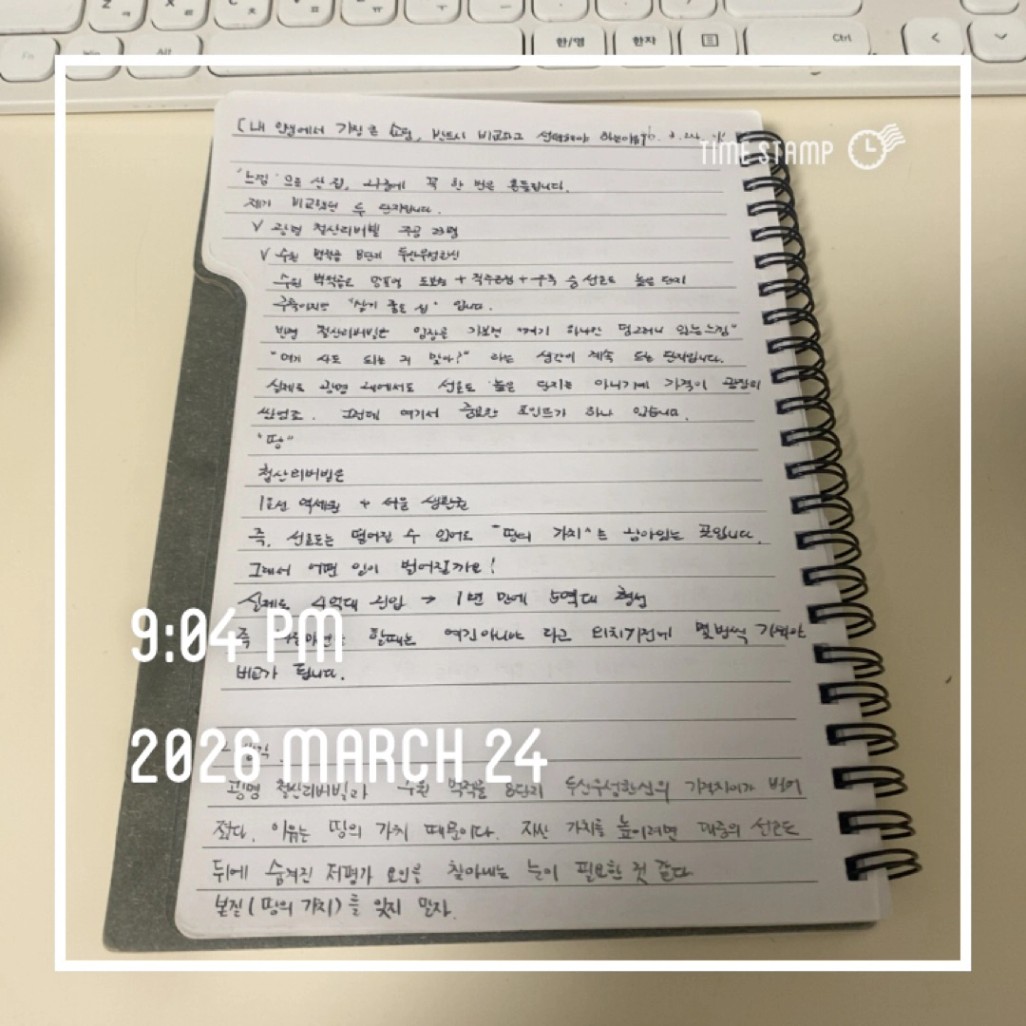 Alt
한/영
한자
Ctrl
[내 인생에서 가장 큰 쇼핑, 반드시 비교하고 선택해야 하는이유]
TIME STAMP
"느낌"으로 산 집, 나중에 꼭 한 번은 흔들립니다.
제가 비교했던 두 단지입니다.
V 광명 철산리버빌 주공 23평
V 수원 벽적골 8단지 두산우성한신
수원 벽적골은 망포역 도보권 + 직주근접 + 구축 중 선호도 높은 단지
구축이지만 "살기 좋은 집" 입니다.
반면 철산리버빌은 임장을 가보면 "여기 하나만 덩그러니 있는느낌"
"여기 사도 되는 거 맞아?" 라는 생각이 계속 드는 단지입니다.
실제로 광명 내에서도 선호도 높은 단지는 아니기에 가격이 굉장히
싼편. 그런데 여기서 중요한 포인트가 하나 있습니다.
"땅"
철산리버빌은
1호선 역세권 + 서울 생활권
즉, 선호도는 떨어질 수 있어도 "땅의 가치"는 남아있는 곳입니다.
그래서 어떤 일이 벌어질까요!
실제로 4억대 진입 → 1년 만에 5억대 형성
9:04 PM
즉 할때는 여긴아니야 라고 외치기전에 몇번씩
비교가 됩니다.
2026 MARCH 24
광명 철산리버빌과 수원 벽적골 8단지 두산우성한신의 가격차이가 벌어
졌다. 이유는 땅의 가치 때문이다. 자산 가치를 높이려면 대중의 선호도
뒤에 숨겨진 저평가 요인을 찾아내는 눈이 필요한 것 같다
본질(땅의 가치)를 잊지 말자.